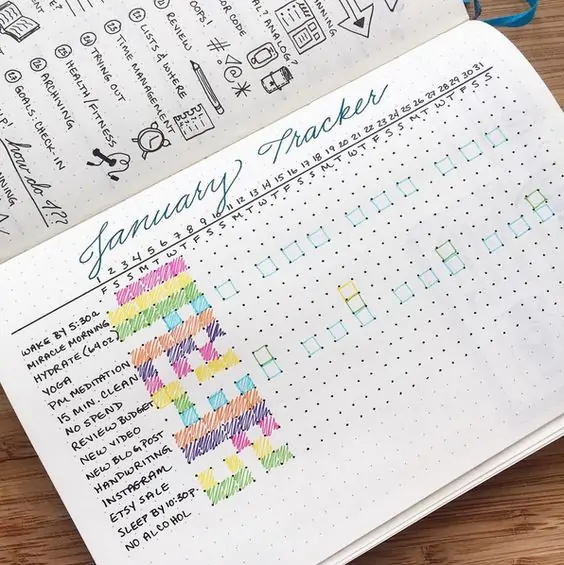 REVIEW
OOPS!
COLOR CODE
ANALOG?
LISTS & WHERE
TIME MANAGEMENT
TRYING OUT
HEALTH/FITNESS
ARCHIVING
GOALS: CHECK-IN
how do I??
January Tracker
1 2 3 4 5 6 7 8 9 10 11 12 13 14 15 16 17 18 19 20 21 22 23 24 25 26 27 28 29 30 31
F S S M T W T F S S M T W T F S S M T W T F S S M T W T F S S
WAKE BY 5:30a
MIRACLE MORNING
HYDRATE (64 oz)
YOGA
PM MEDITATION
15 MIN. CLEAN
NO SPEND
REVIEW BUDGET
NEW VIDEO
NEW BLOG POST
HANDWRITING
INSTAGRAM
ETSY SALE
SLEEP BY 10:30p
NO ALCOHOL